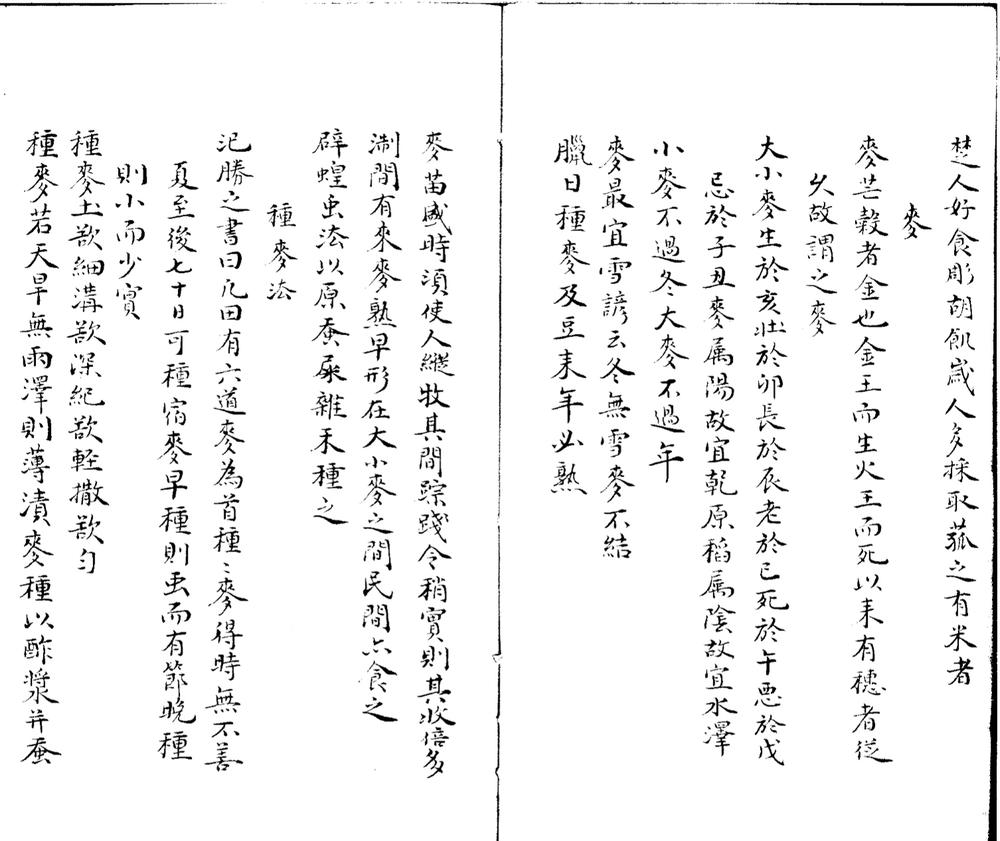 楚人好食彫胡飢歲人多採取菰之有米者
麥
麥芒穀者金也金王而生火王而死以耒有穗者從
夂故謂之麥
大小麥生於亥壯於卯長於辰老於巳死於午惡於戊
忌於子丑麥属陽故宜乾原稻属陰故宜水澤
小麥不過冬大麥不過年
麥最宜雪諺云冬無雪麥不結
臘日種麥及豆耒年必熟
麥苗盛時須使人縱牧其間踪踐令稍實則其收倍多
淛間有來麥熟早形在大小麥之間民間亦食之
辟蝗虫法以原蚕屎雜禾種之
種麥法
氾勝之書曰凡田有六道麥為首種〻麥得時無不善
夏至後七十日可種宿麥早種則虫而有節晚種
則小而少實
種麥土欲細溝欲深紀欲軽撒欲匀
種麥若天旱無雨澤則薄漬麥種以酢漿并蚕